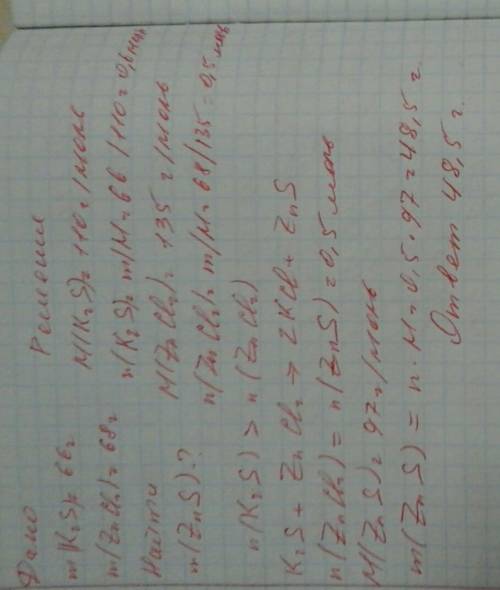 Дано
m(K₂S)=66г
m(ZnCl₂)=68г
Найти
m(ZnS)?
Решение
M(K₂S)=110г/моль
n(K₂S)=m/M=66/110=0,6моль
M(ZnCl₂)=135г/моль
n(ZnCl₂)=m/M=68/135=0,5моль
n(K₂S)>n(ZnCl₂)
K₂S+ZnCl₂→2KCl+ZnS
n(ZnCl₂)=n(ZnS)=0,5моль
M(ZnS)=97г/моль
m(ZnS)=n·M=0,5·97=48,5г.
Ответ 48,5г.